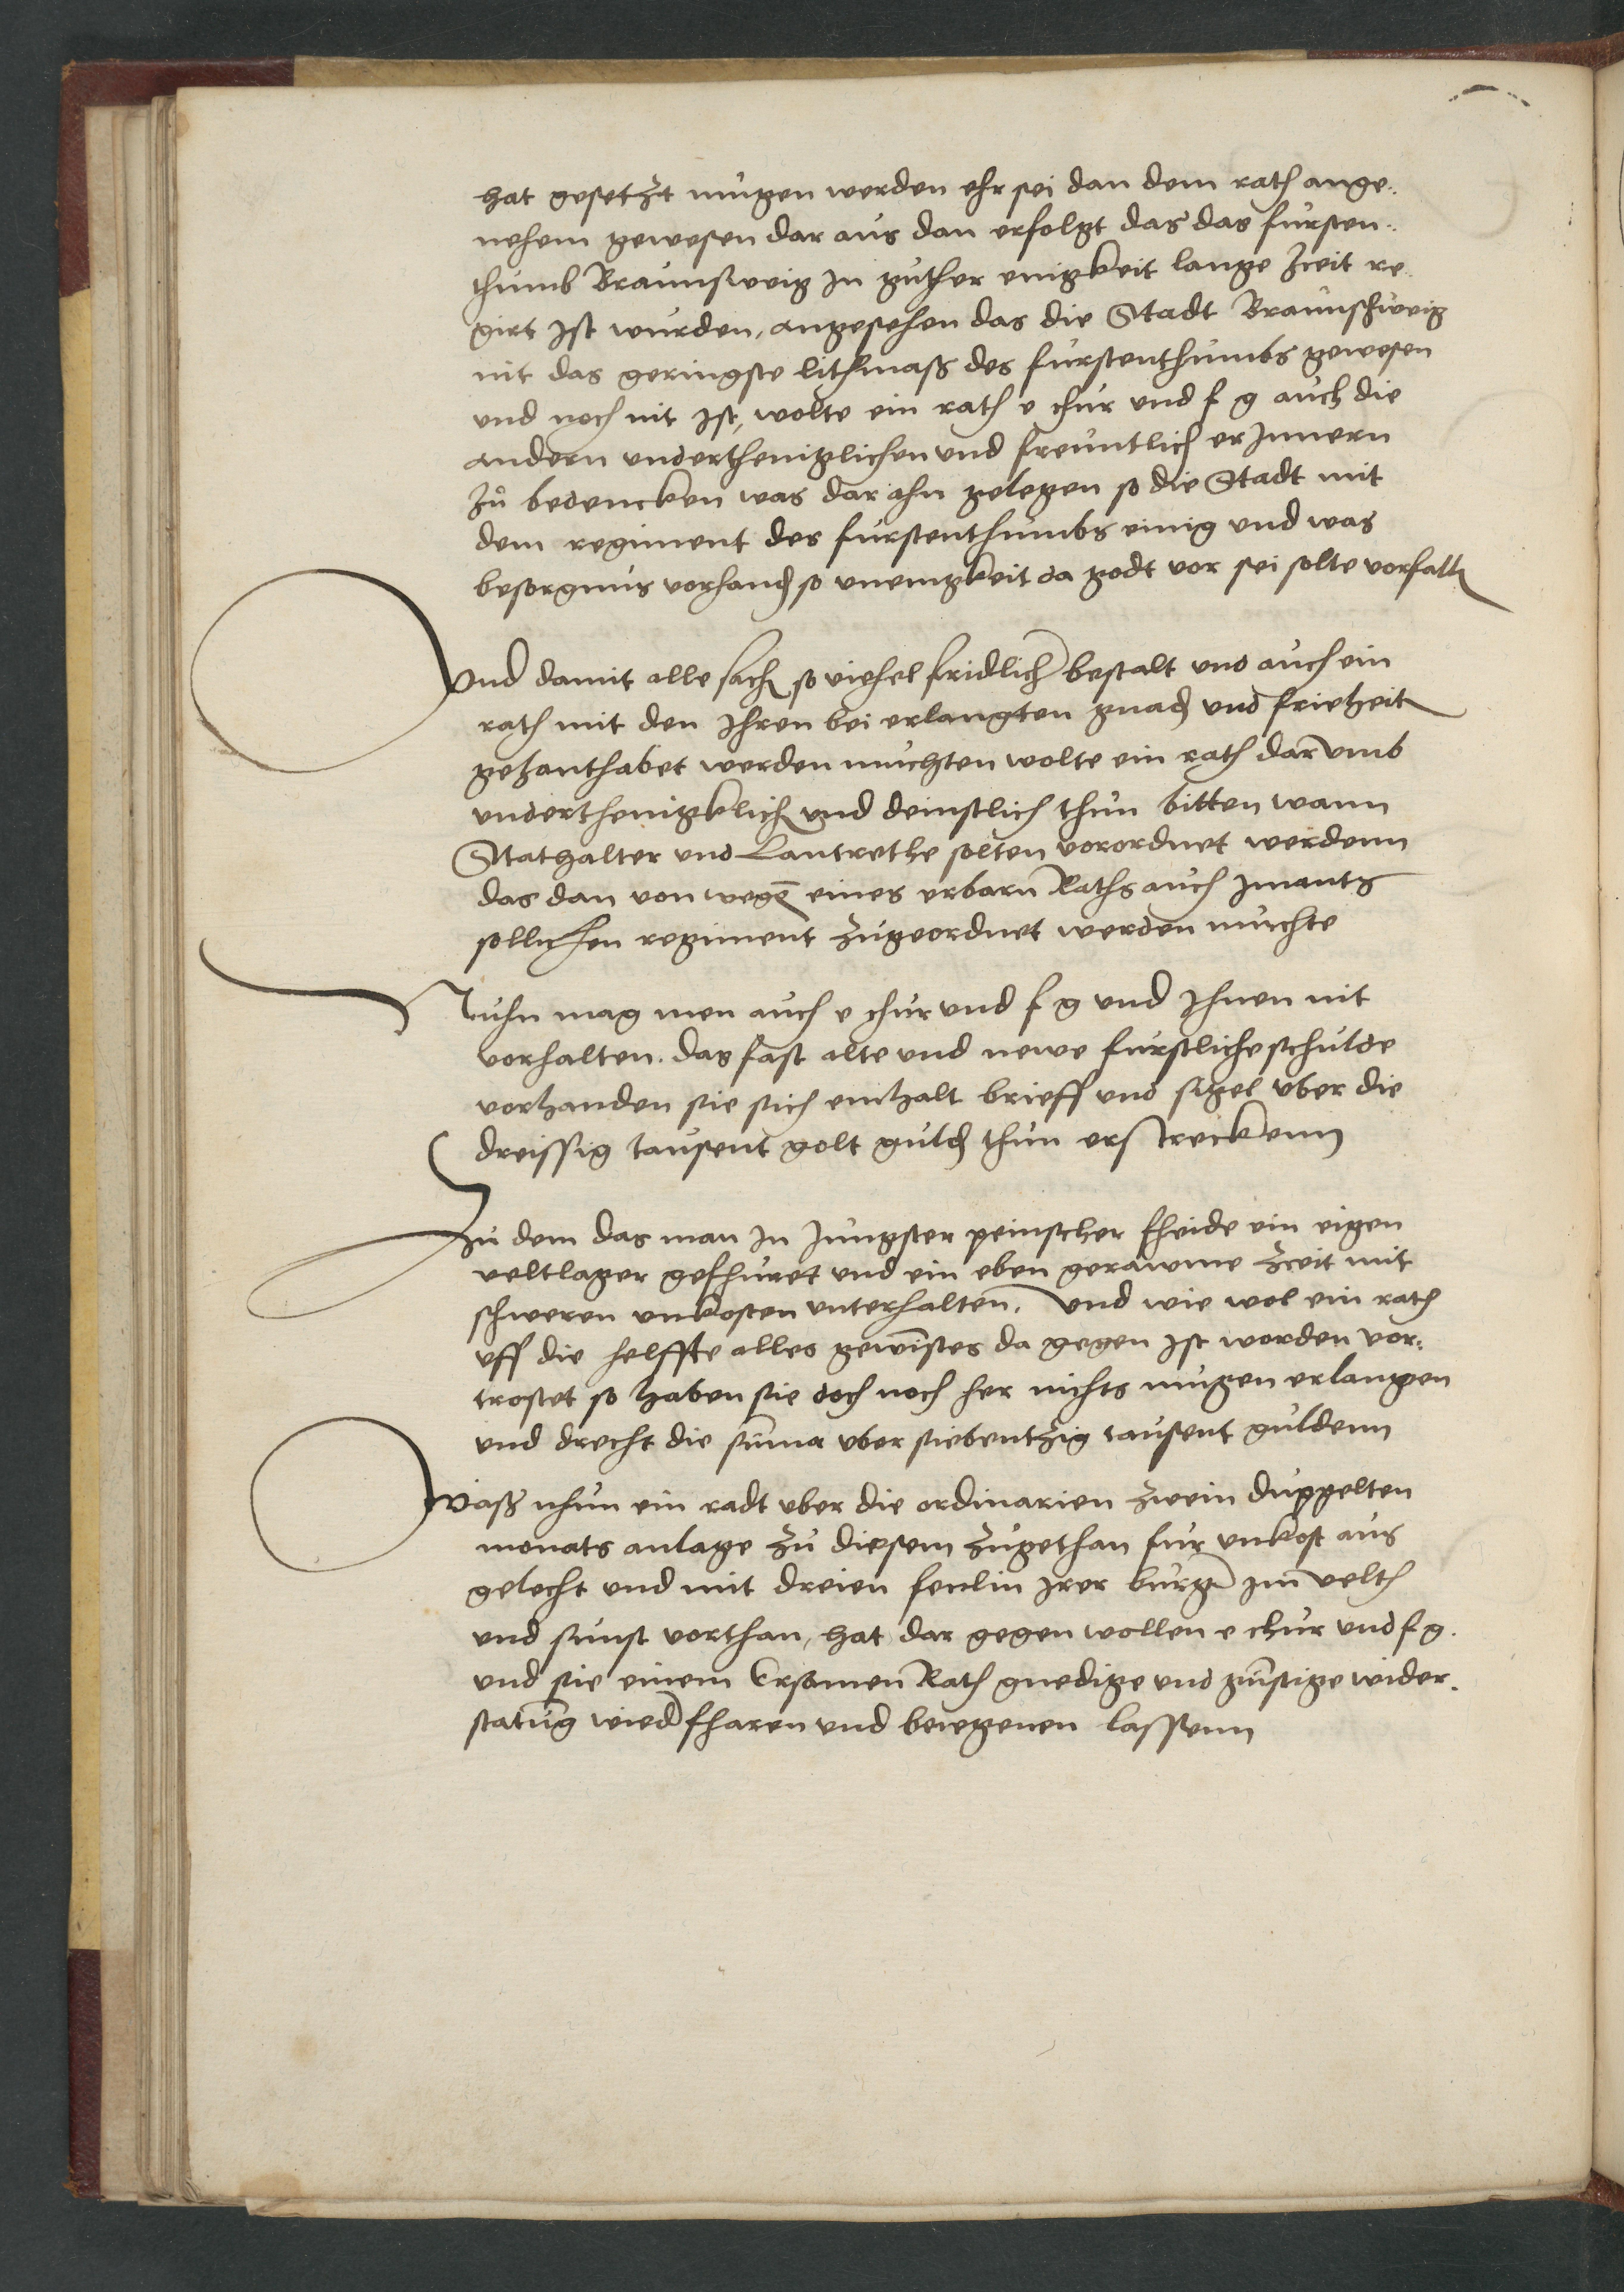 hat gesetzt mugen werden ehr sei dan dem rath ange..
nehem gewesen dar aus dan erfolgt das das fursten..
thumb Braunsweig In guther einigkeit lange Zceit re
girt Ist wurden, angesehen das die Stadt Braunschweig
nit das geringste lithmass des furstenthumbs gewesen
und noch nit Ist, wolte ein rath e chur und f g auch die
andern underthenigclichen und freuntlich erInnern
Zu bedencken was dar ahn gelegen so die Stadt mit
dem regiment des furstenthumbs einig und was
besorgnus vorhanden so uneinigkeit da godt vor sei solte vorfallen
Und damit alle sachen so viehel fridlicher bestalt und auch ein
rath mit den Ihren bei erlangten gnaden und frieheiten
gehanthabet werden muchten wolte ein rath darumb
underthenigklich und deinstlich thun bitten wann
Stathalter und Lantrethe solten vorordnet werdenn
das dan von wegen eines erbarn Raths auch Imants
sollichen regiment Zugeordnet werden muchte
Nuhn mag men auch e chur und f g und Ihnen nit
vorhalten. das fast alte und newe furstliche schulde
vorhanden sie sich einhalt brieff und sigel uber die
dreissig tausent golt gulden thun erstreckenn
Zu dem das man In Jungster peinscher fheide ein eigen
veltlager gefhuret und ein eben geraume Zceit mit
schweren unkosten unterhalten. Und wie wol ein rath
uff die helffte alles gewinstes da gegen Ist worden vor:
trostet so haben sie doch noch her nichts mugen erlangen
und drecht die summa uber siebentzig tausent guldenn
Wass nhun ein radt uber die ordinarien Zwein duppelten
monats anlage Zu diesem Zugethan fur unkost aus
gelecht und mit dreien fenlin Irer burger Im velth
und sunst vorthan, hat dar gegen wollen e chur und f g.
und sie einem Ersamen Rath gnedige und gunstige wider.
statung wiederfharen und beiegenen lassenn